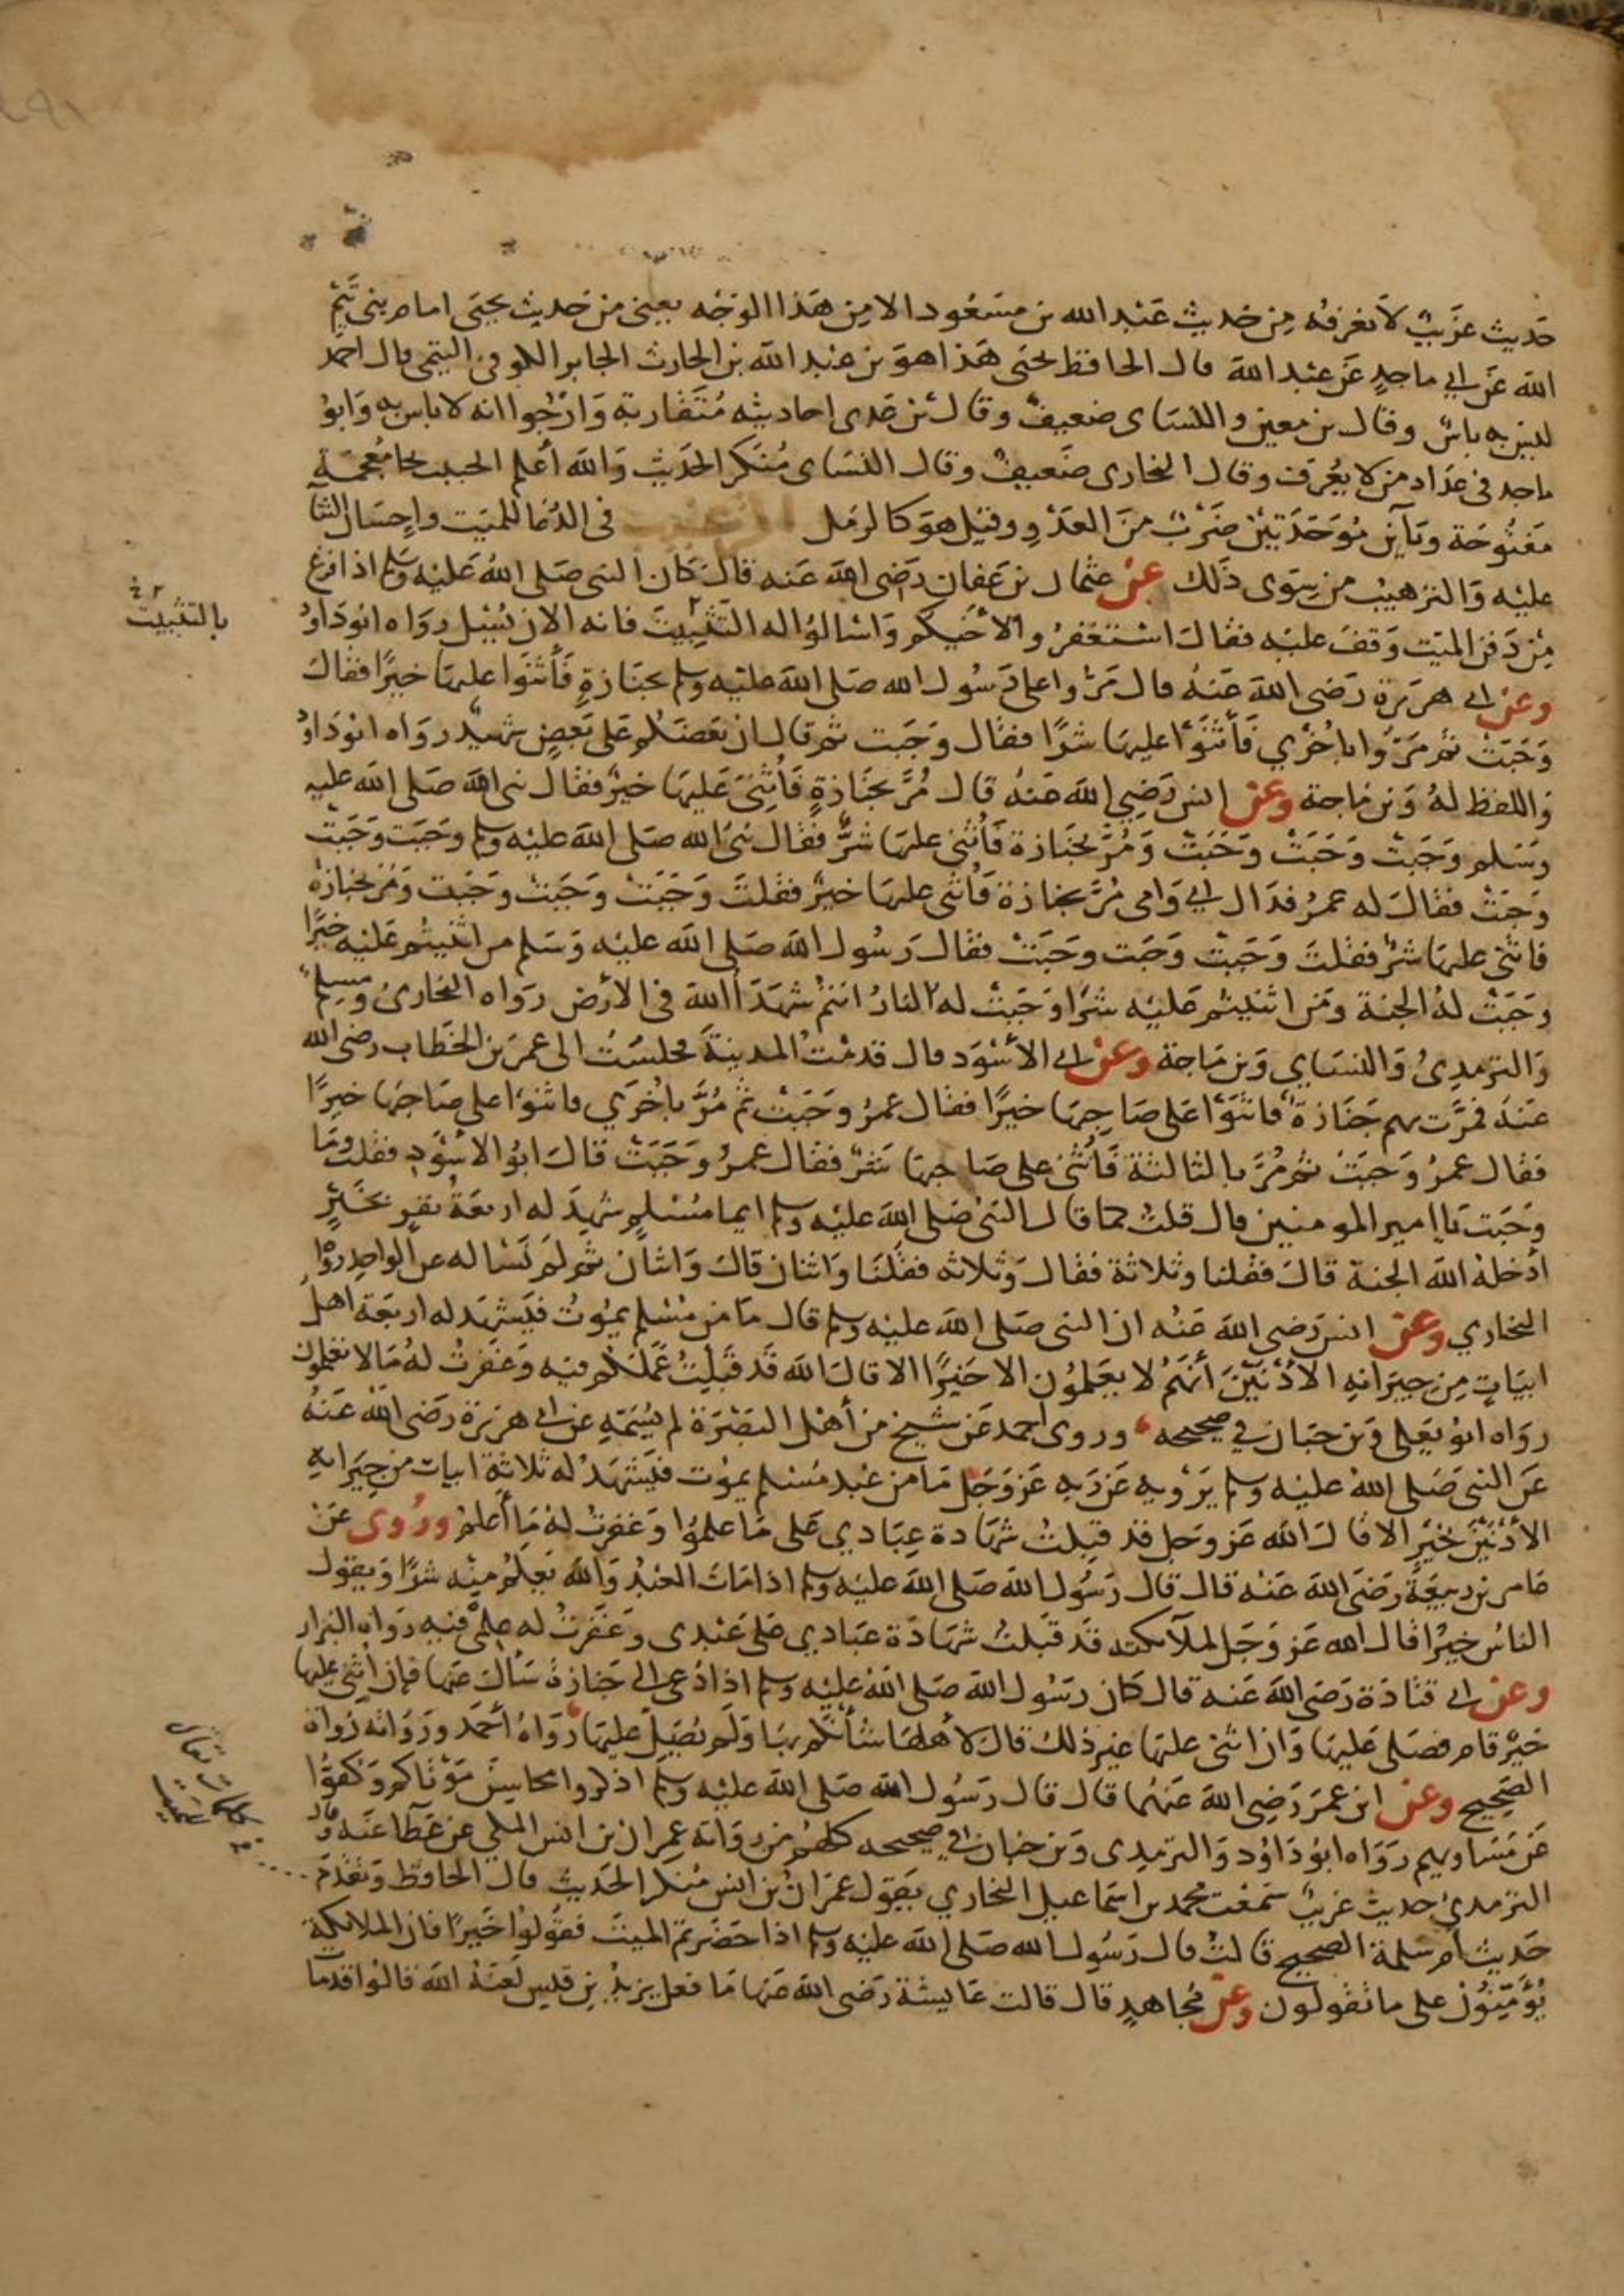 حَديث غريبٌ لا نعرفه مِن حَديث عَبْدالله بن مسَعُود الا مِن هَذا الوَجْه يعني من حَديث يحيى امام بني تَيْمِ
الله عَن ابي ماجدٍ عَن عبْدالله قال الحافظ يحيى هَذا هو بن عبْدالله بن الحارث الجابر الكوفي التيمى قال احمد
ليس به باسٌ وقال بن معين والنسَاى ضعيفٌ وقال بْن عَدى احاديثه مُتَقاربة وَارْجُوا انه لا باس به وَابوُ
ماجد في عدَاد من لا يعُرَف وقال البخارى ضَعيفٌ وقال النسَاى مُنكر الحَديث وَالله أعلم الخبب بخا مُعجَمَة
مَفتُوحَة وبَآين مُوَحَدَتيْن ضَرْبٌ منَ العَدْوِ وقيل هوَ كالرمل في الدُعَا للميَت واحِسَان الثنَا
عليْه وَالترْهيبْ من سِوَى ذَلك عن عثمان بن عَفان رَضى الله عَنه قالَ كَان النبى صَلى اللهُ عَليْه وسَلم اذا فرغ
مِنْ دَفن الميَت وَقفَ عليْه فقالَ اسْتغفرُوا لأخَيكم وَاسْالوُا له التَثبيتَ فانه الان يُسْئل روَاه ابوُدَاودُ
بالتثبيت
وعَن ابى هرَيرَة رَضى الله عَنهُ قال مَرُّوا على رَسُول الله صَلى الله عليْه وسلم بجنَازةٍ فَأثنَوا عليهَا خيرًا فقالَ
وَجَبَتْ ثم مَرّوُا باخُرَْي فَأثنَوْا عليهَا شرًا فقال وَجَبَت ثم قال ان بَعضَكم عَلى بَعضٍ شهيدٌ روَاه ابوُدَاودُ
وَاللفظ لهُ وَبن مَاجة وعن انس رَضِي الله عَنهُ قال مُرَّ بجَنَازةٍ فَأُثنِىَ عَليهَا خيرٌ فقال نبى الله صَلى الله عليه
وسَلم وَجَبتْ وَجَبَتْ وَجَبَتْ وَمُرَّ بجَنازة فأُثني عليهَا شرٌّ فقال نبىُّ الله صَلى الله عليْه وسلم وَجَبَت وَجَبَتْ
وَجَبَتْ فقالَ له عمرُ فدَاك ابي وَامى مُرَّ بجنازة فَأُثنى عليهَا خيرٌ فقلتَ وَجَبَتْ وَجَبَتْ وَجَبَت وَمُرَّ بجنازَة
فأُثنى عليهَا شرٌّ فقلتَ وَجَبَتْ وَجَبَت وَجَبَتْ فقال رَسُول الله صَلى الله عليْه وَسَلم من اثنيتُم عَليْه خَيْرًا
وجَبَتْ لهُ الجنة وَمَن اثنيتم عَليْه شرًا وَجَبتْ له النارُ انتمْ شهَدَأ الله في الارْض روَاه البخارىُ ومسلِمٌ
وَالترمذِىُ وَالنسَايي وَبن مَاجة وعن ابى الاسْوَد قال قدمْت المدينَة فجلسْتُ الى عمَر بن الخطاب رضى الله
عَنهُ فمَرَّت بهم جَنَازة فاثنَوْا عَلى صَاحِبهَا خيرًا فقال عمرُ وَجَبَتْ ثم مُرَّ باُخرَي فاثنوَا على صَاحبهَا خيرًا
فقال عمرُ وَجبَتْ ثم مُرَّ بالثالثة فَأُثنيَ على صَاحبهَا شرٌّ فقال عمرُ وَجَبَتْ قالَ ابوُ الاسْوَدِ فقلتُ وَمَا
وَجَبَت يَا امير المومنين قال قلتُ كما قال النبىُ صَلى الله عليْه وسلم ايما مسْلمٍ شهِدَ له اربعَةُ نفرٍ بخَيْرٍ
ادْخلهُ الله الجنة قالَ فقلنا وثلاثة فقال وَثلاثه فقلنَا وَاثنان قالَ وَاثنان ثم لم نَسْاله عن الواحِد روَاه
البخاري وعن انس رَضى الله عَنْه ان النبى صَلى الله عليْه وسلم قال مَا من مسْلمٍ يموُتُ فيَشهَد له اربَعَة اهل
ابيَاتٍ مِن جيرَانهِ الادْنَيْنَ أنهَمُ لا يعَلموُن الا خَيرًا الا قالَ الله قَد قَبلْتُ عِلمَكم فيْه وَغفرتُ لهُ مَا لا تعْلموُن
روَاه ابوُ يَعلى وَبن حبَان في صحيحه وروى احمد عَن شيخ من أهْل البَصْرَة لم يُسَمّه عن ابى هرَيرَة رَضى الله عَنهُ
عَن النبى صَلى اللهُ عليْه وسلم يَرْويهِ عَن رَبهِ عَزَ وَجَل مَا من عبْد مُسْلم يموُت فيَشهَدُ له ثلاثة ابيات من جيرَانهِ
الأدْنَيْن بخيْر الا قالَ الله عَز وجل قد قبلتُ شهَادة عِبَادي عَلى مَا علموُا وَغفرتُ لهُ مَا أعلمُ وروُى عَنْ
عَامر بن ربيعَة رَضَى الله عَنه قال قال رَسُول الله صَلى الله عليْه وسلم اذا مَات العبْدُ وَالله يَعلمُ مِنه شرًا وَيقول
الناسُ خيرًا قال الله عَز وَجَل لملآئكته قَد قبَلتُ شهَادَة عبَادي عَلى عَبْدى وَغَفرتُ له عِلمى فيهِ روَاه البزار
وعن ابي قتادَة رَضَى الله عَنه قال كَان رَسُول الله صَلى اللهُ عليْه وسلم اذا دُعى الى جَنازة سَأل عَنها فإن أُثنِيَ عليها
خيْرٌ قام فصَلى عَليهَا وَان اثنى عليها غيرَ ذلك قالَ لأهلهَا شأنَكم بهَا وَلم يُصَلِّ عليهَا رَوَاهُ أحْمَد وَرُوَاته رُواة
الصَحيح وعن ابن عمَرَ رَضِى الله عَنهُما قال قال رَسُول الله صَلى الله عليْه وسلم اذكروا محاسِنَ مَوْتاكم وَكفوّا
عَن مَسَاويهم رَوَاه ابوُ دَاوُد وَالترمذِى وَبن حبَان في صحيحه كلهُم من روَاية عمرَان بن انس المكي عن عَطَآ عَنه وقال
الترْمذيُ حديث غريبٌ سَمعْت محمد بن اسْمَاعيل البخاري يَقوُل عمرَانُ بْن انس منكر الحَديث قال الحَافظ وَتقدَّمَ
حَديث أم سَلمة الصحيح قالتْ قال رَسُول الله صَلى الله عليْه وسلم اذا حَضَرتم الميتَ فقوُلوا خَيرًا فان الملائكة
يُؤَمّنوُن على ما تقولون وعن مُجَاهدٍ قال قالت عَائِشة رَضَى الله عَنهَا مَا فعل يزيدُ بن قيس لَعنَهُ الله قالوا قدمَات